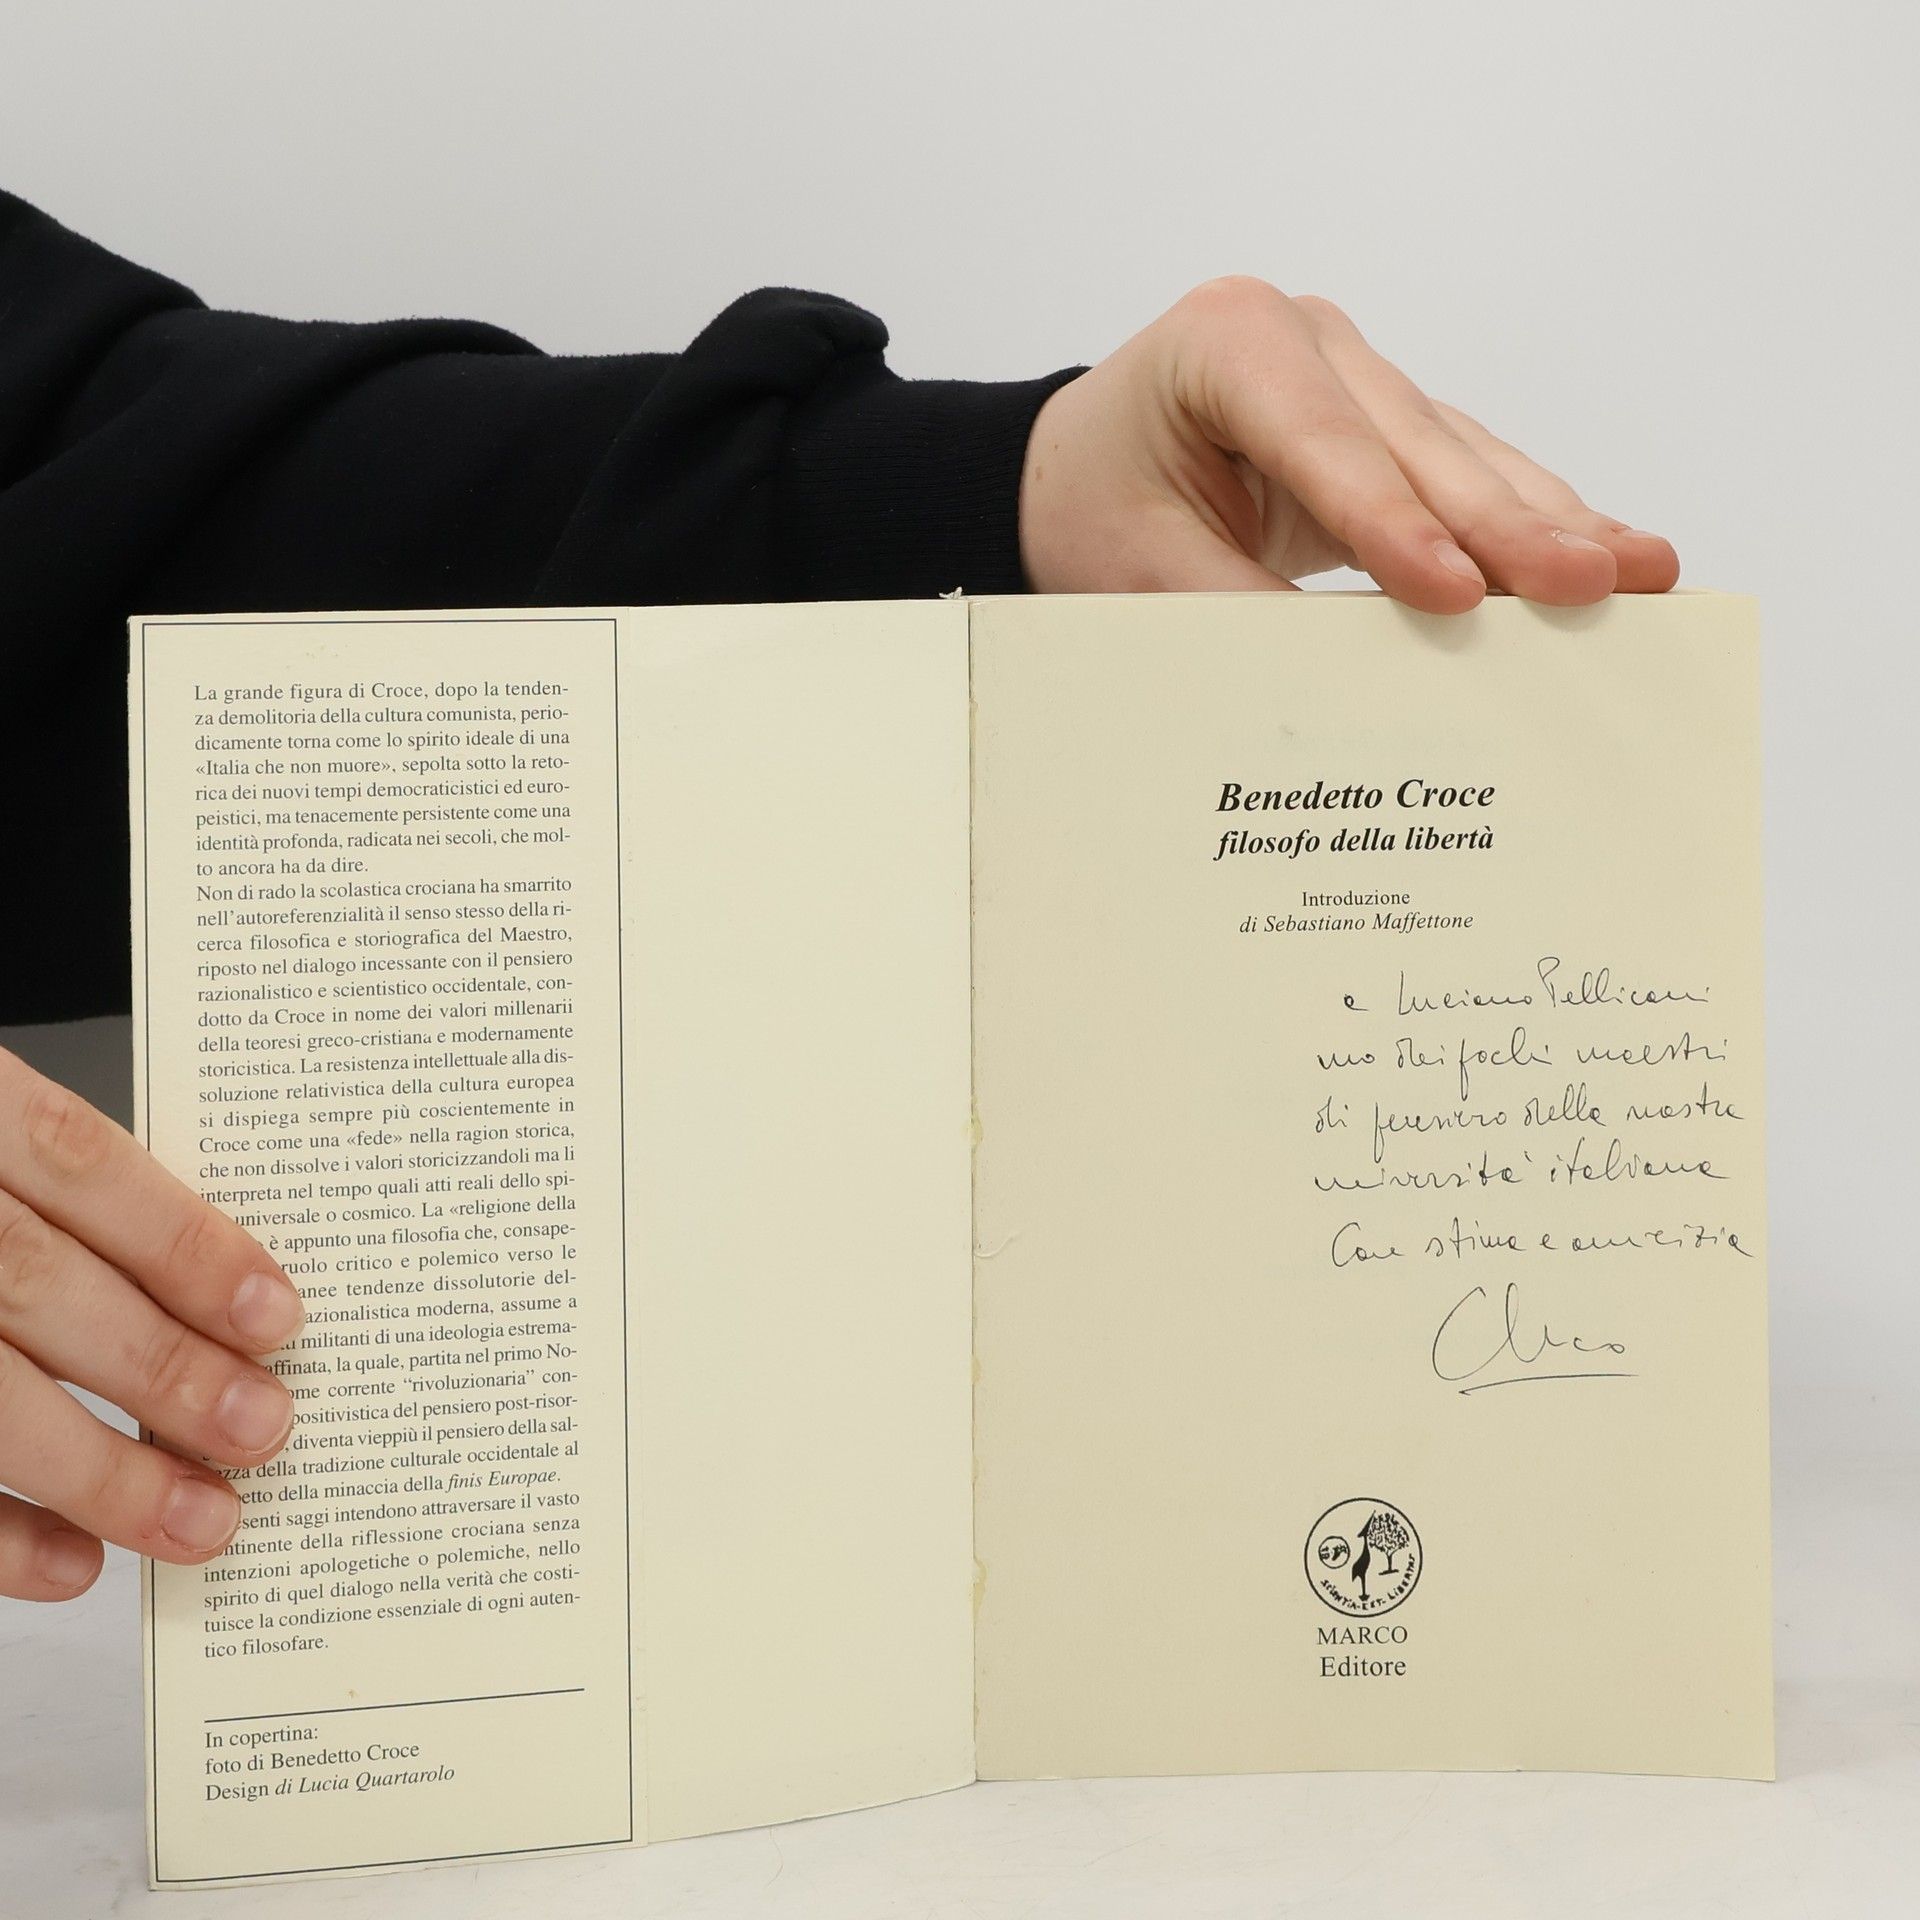 La grande figura di Croce, dopo la tenden-
za demolitoria della cultura comunista, perio-
dicamente torna come lo spirito ideale di una
«Italia che non muore», sepolta sotto la reto-
rica dei nuovi tempi democraticistici ed euro-
peistici, ma tenacemente persistente come una
identità profonda, radicata nei secoli, che mol-
to ancora ha da dire.
Non di rado la scolastica crociana ha smarrito
nell'autoreferenzialità il senso stesso della ri-
cerca filosofica e storiografica del Maestro,
riposto nel dialogo incessante con il pensiero
razionalistico e scientistico occidentale, con-
dotto da Croce in nome dei valori millenarii
della teoresi greco-cristiana e modernamente
storicistica. La resistenza intellettuale alla dis-
soluzione relativistica della cultura europea
si dispiega sempre più coscientemente in
Croce come una «fede» nella ragion storica,
che non dissolve i valori storicizzandoli ma li
interpreta nel tempo quali atti reali dello spi-
universale o cosmico. La «religione della
è appunto una filosofia che, consape-
ruolo critico e polemico verso le
anee tendenze dissolutorie del-
azionalistica moderna, assume a
militanti di una ideologia estrema-
affinata, la quale, partita nel primo No-
ome corrente “rivoluzionaria” con-
positivistica del pensiero post-risor-
, diventa vieppiù il pensiero della sal-
ezza della tradizione culturale occidentale al
petto della minaccia della finis Europae.
esenti saggi intendono attraversare il vasto
ontinente della riflessione crociana senza
intenzioni apologetiche o polemiche, nello
spirito di quel dialogo nella verità che costi-
tuisce la condizione essenziale di ogni auten-
tico filosofare.
In copertina:
foto di Benedetto Croce
Design di Lucia Quartarolo
Benedetto Croce
filosofo della libertà
Introduzione
di Sebastiano Maffettone
a Luciano Pellicani
uno dei pochi maestri
di pensiero della nostra
università italiana
Con stima e amicizia
SCIENTIA EST LIBERTAS
MARCO
Editore